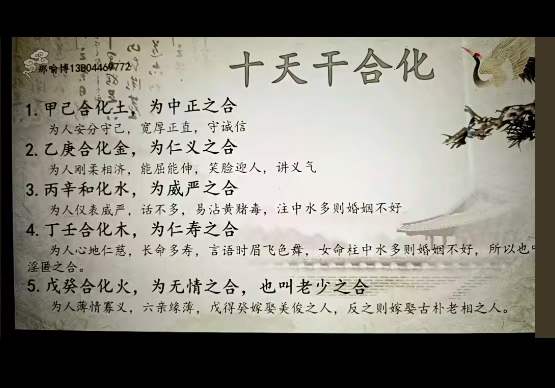 十天干合化
1. 甲己合化土，为中正之合
为人安分守己，宽厚正直，守诚信
2. 乙庚合化金，为仁义之合
为人刚柔相济，能屈能伸，笑脸迎人，讲义气
3. 丙辛和化水，为威严之合
为人仪表威严，话不多，易沾黄赌毒，注中水多则婚姻不好
4. 丁壬合化木，为仁寿之合
为人心地仁慈，长命多寿，言语时眉飞色舞，女命柱中水多则婚姻不好，所以也
淫匿之合。
5. 戊癸合化火，为无情之合，也叫老少之合
为人薄情寡义，六亲缘薄，戊得癸嫁娶美俊之人，反之则嫁娶古朴老相之人。